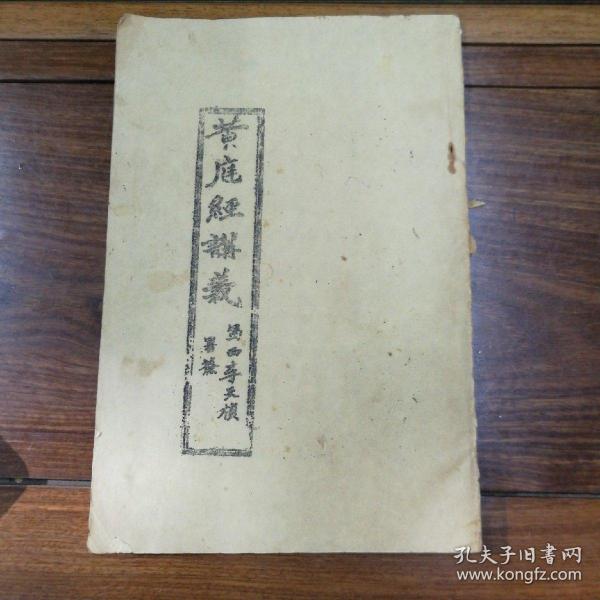 黄庭經講義
蜀西李天根
署籤
孔夫子旧书网
www.kongfz.com